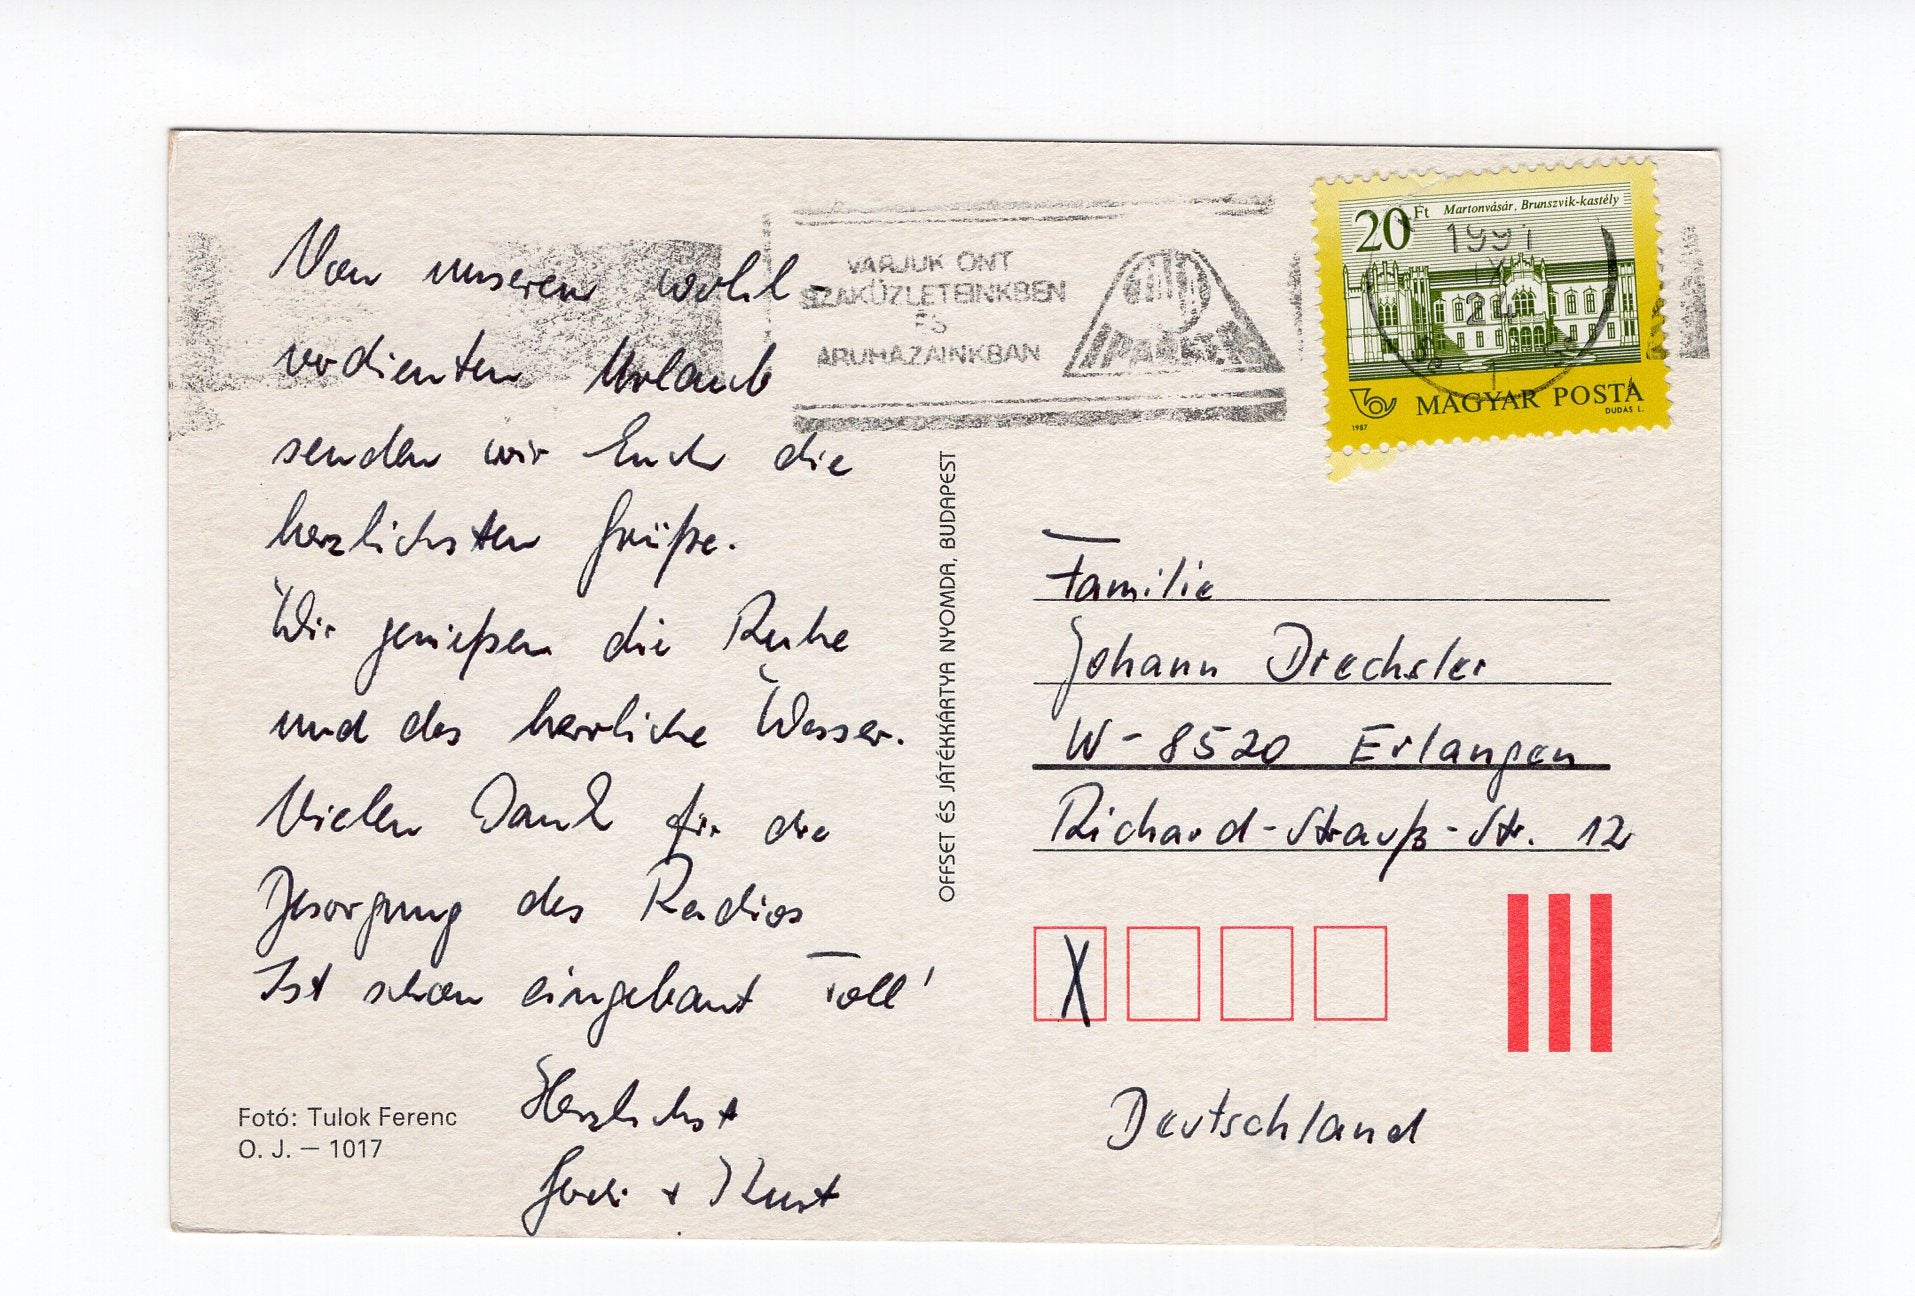 Von unseren wohl-
verdienten Urlaub
senden wir Euch die
herzlichsten Grüße.
Wir genießen die Ruhe
und das herrliche Wasser.
Vielen Dank für die
Besorgung des Radios
Ist schon eingebaut Toll!
Herzlichst
+ Kurt
Fotó: Tulok Ferenc
O. J. — 1017
OFFSET ÉS JÁTÉKKÁRTYA NYOMDA, BUDAPEST
VÁRJUK ÖNT
SZAKÜZLETEINKBEN
ÉS
ÁRUHÁZAINKBAN
20 Ft Martonvásár, Brunszvik-kastély
1991
IX
24
MAGYAR POSTA
DUDÁS L.
1987
Familie
Johann Drechsler
W-8520 Erlangen
Richard-Strauß-Str. 12
X
Deutschland